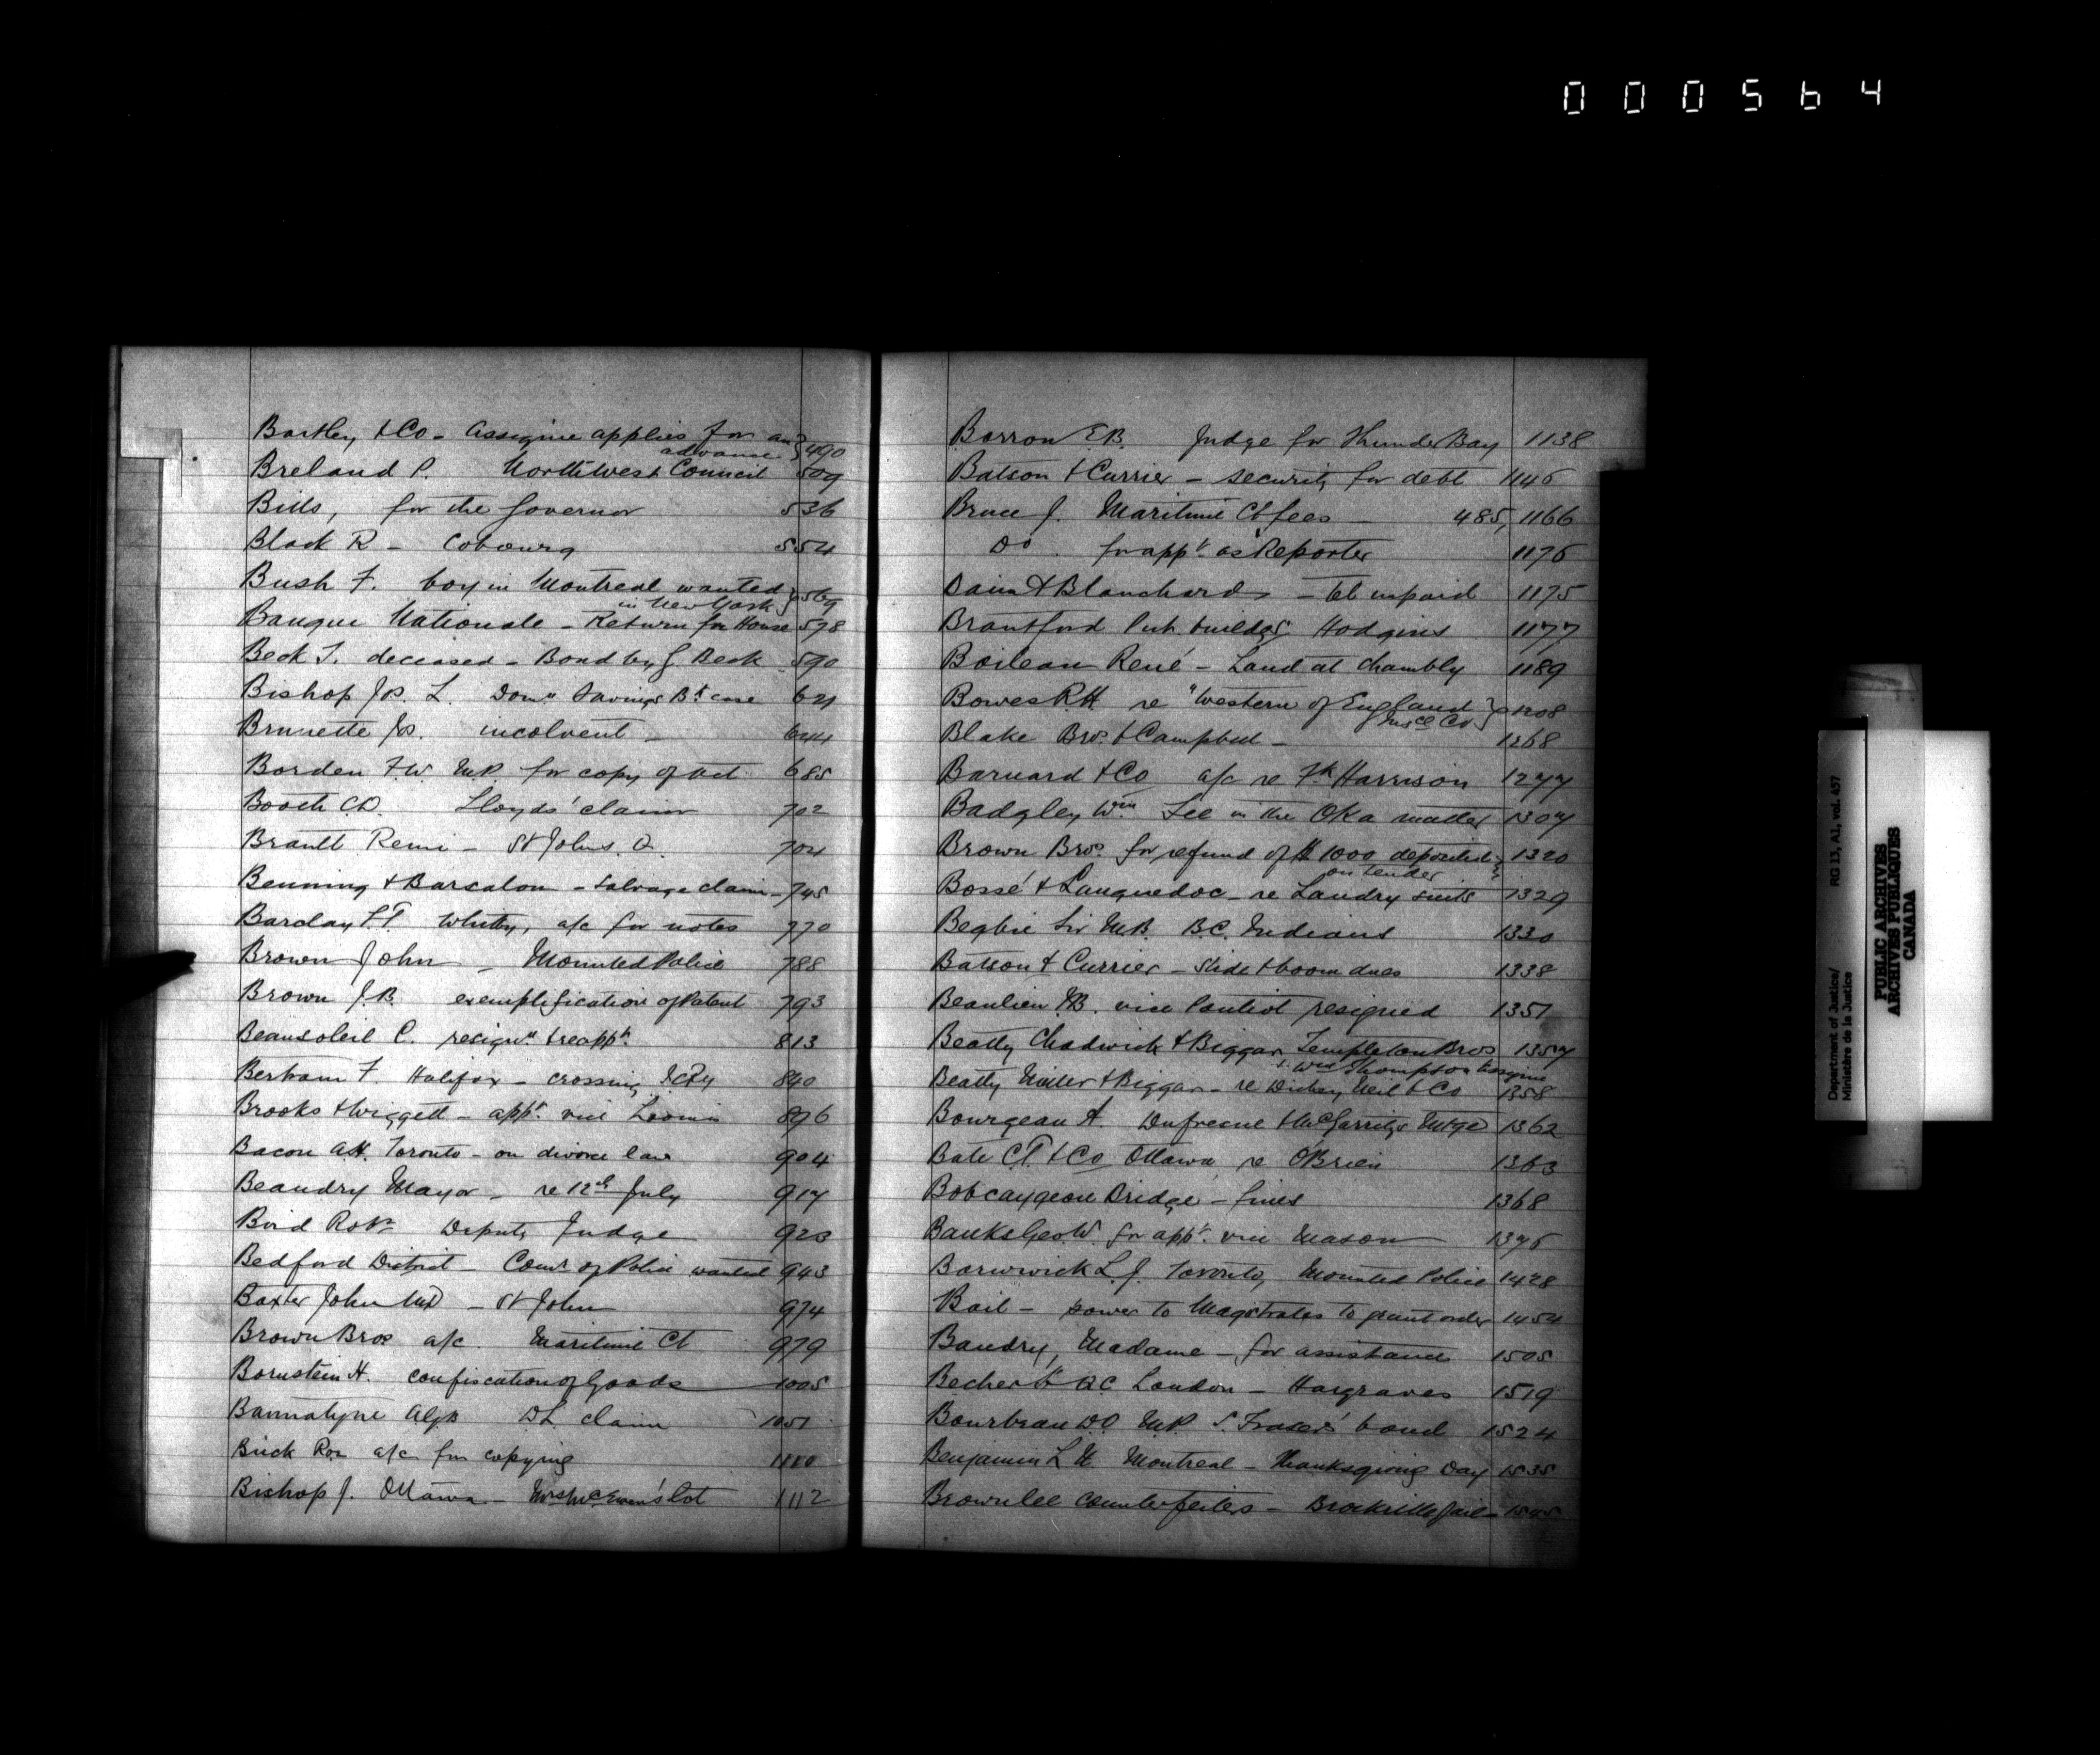 000564
Bartley & Co - Assignee applies for an
advance } 490
Breland P. Northwest Council 509
Bills, for the Governor 536
Black R - Cobourg 554
Bush F. boy in Montreal wanted
in New York } 569
Banque Nationale - Return for House 578
Beck J. deceased - Bond by G Beck 590
Bishop Jos. L. Domn Savings Bk case 621
Brunette Jos. insolvent - 644
Borden F.W. M.P. for copy of Act 685
Booth C.D. Lloyds' claim 702
Brault Remi - St Johns. Q. 704
Benning & Barsalou - Salvage claim - 745
Barclay Whitby, a/c for notes 770
Brown John - Mounted Police 788
Brown J.B. exemplification of Patent 793
Beausoleil C. resign.n & reappt. 813
Bertram F. Halifax - crossing I.C.Ry 840
Brooks & Wiggett - appt. vice Loomis 896
Bacon A.H. Toronto - on divorce law 904
Beaudry Mayor - re 12th July 917
Bird Robt Deputy Judge 923
Bedford District - Comr of Police wanted 943
Baxter John MD - St John 974
Brown Bros a/c. Maritime Ct 979
Bornstein H. confiscation of Goods 1005
Bannatyne DL claim 1051
Buck a/c for copying 1110
Bishop J. Ottawa - Mrs McEwen's lot 1112
Borron E.B. Judge for Thunder Bay 1138
Batson & Currier - security for debt 1146
Bruce J. Maritime Ct fees - 485, 1166
Do . for appt. as Reporter 1176
Bain & Blanchard - tel unpaid 1175
Brantford Pub. buildgs. Hodgins 1177
Boileau René - Land at Chambly 1189
Bowes R.H. re "Western of England
Insce Co } 1208
Blake Bros. & Campbell - 1268
Barnard & Co a/c re Fk Harrison 1277
Badgley Wm Fee in the Oka matter 1307
Brown Bros. for refund of $1000 deposited
on tender } 1320
Bossé & Languedoc - re Landry suits 1329
Begbie Sir M.B. B.C. Indians 1330
Batson & Currier - slide & boom dues 1338
Beaulieu vice resigned 1351
Beatty Chadwick & Biggar, Templeton Bros 1357
& Wm Thompson Assignee
Beatty Miller & Biggar - re Dickey Neil & Co 1358
Bourgeau A. Dufresne & McGarritys Mtge 1362
Bate C.T. & Co Ottawa re O'Brien 1363
Bobcaygeon Bridge - fines 1368
Banks Geo W. for appt. vice Mason 1376
Barwick L.J. Toronto, Mounted Police 1428
Bail - power to Magistrates to grant order 1454
Baudry, Madame - for assistance 1505
Becher QC London - Hargraves 1519
Bourbeau D.O. M.P. Fraser's bond 1524
Benjamin L N. Montreal - Thanksgiving Day 1535
Brownlee counterfeiters - Brockville Jail - 1545
Department of Justice/
Ministère de la Justice
RG 13, A1, vol. 457
PUBLIC ARCHIVES
ARCHIVES PUBLIQUES
CANADA